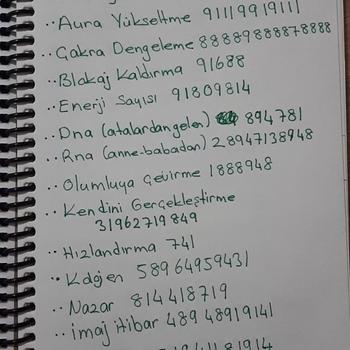 .. Aura Yükseltme 91119919111
.. Çakra Dengeleme 88889888878888
.. Blokaj Kaldırma 91688
.. Enerji Sayısı 91809814
.. Dna (atalardan gelen) 894781
.. Rna (anne-babadan) 28947138948
.. Olumluya Çevirme 1888948
.. Kendini Gerçekleştirme
31962719849
.. Hızlandırma 741
.. Kdojen 58964959431
.. Nazar 814418719
.. imaj itibar 489 48919141